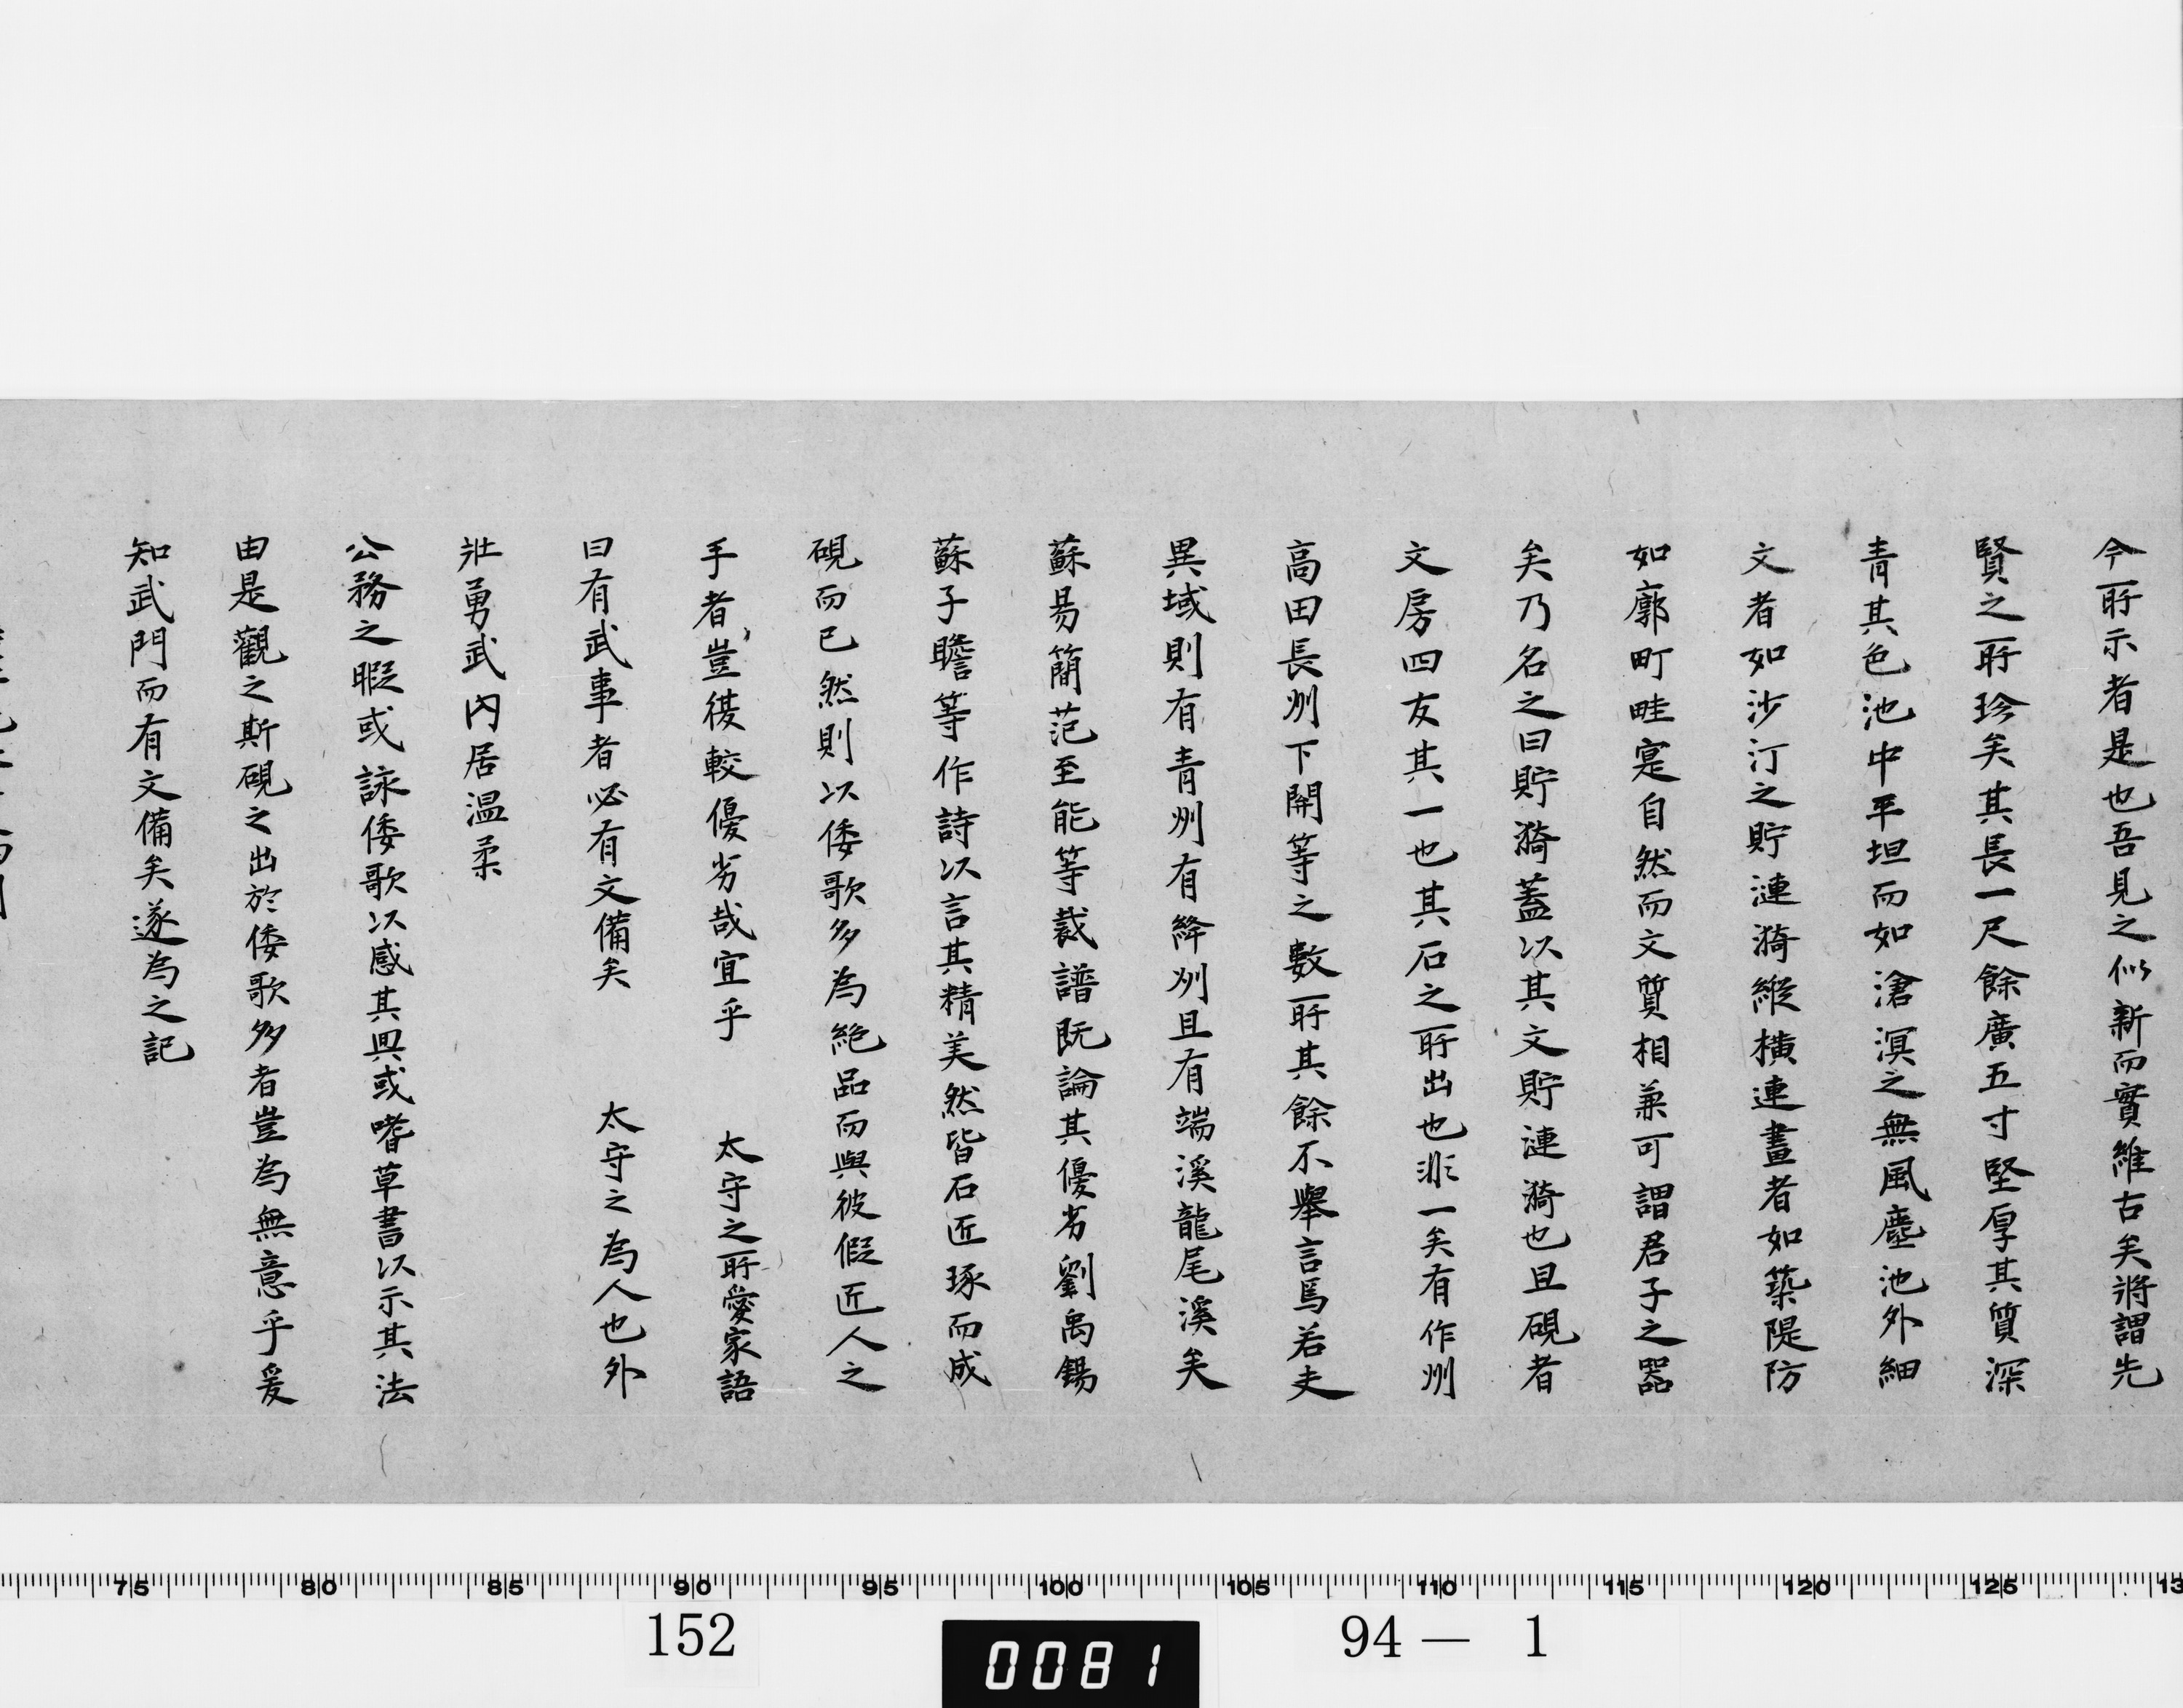 今所示者是也吾見之似新而實維古矣將謂先
賢之所珍矣其長一尺餘廣五寸堅厚其質深
青其色池中平坦而如滄溟之無風塵池外細
文者如沙汀之貯漣漪縱橫連畫者如築隄防
如廓町畦寔自然而文質相兼可謂君子之器
矣乃名之曰貯漪蓋以其文貯漣漪也且硯者
文房四友其一也其石之所出也非一矣有作州
高田長州下關等之數所其餘不舉言焉若夫
異域則有青州有絳州且有端溪龍尾溪矣
蘇易簡范至能等裁譜既論其優劣劉禹錫
蘇子瞻等作詩以言其精美然皆石匠琢而成
硯而已然則以倭歌多為絶品而與彼假匠人之
手者豈復較優劣哉宜乎 太守之所愛家語
曰有武事者必有文備矣 太守之為人也外
壯勇武內居温柔
公務之暇或詠倭歌以感其興或嗜草書以示其法
由是觀之斯硯之出於倭歌多者豈為無意乎爰
知武門而有文備矣遂為之記
75 80 85 90 95 100 105 110 115 120 125 13
152 0081 94 — 1